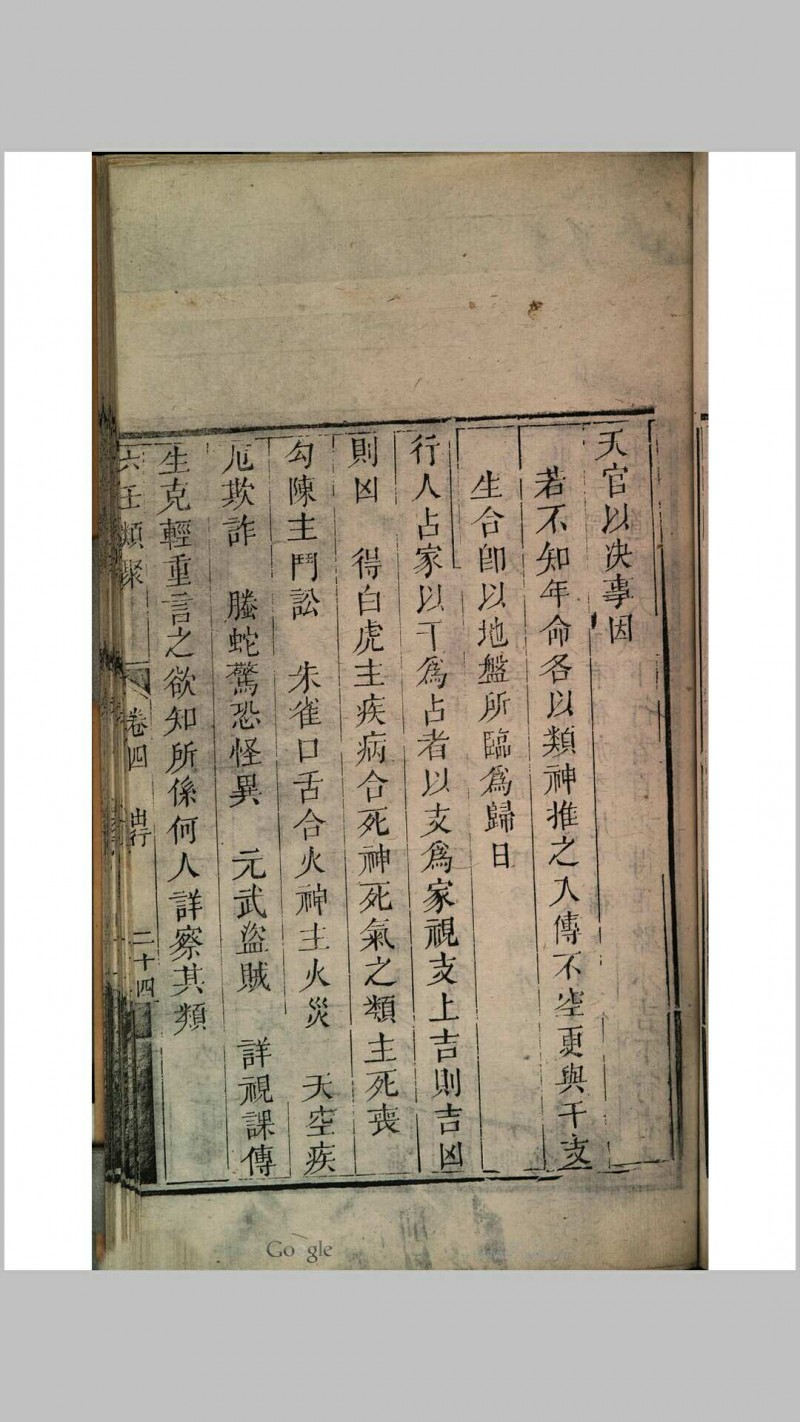 天官以决事因
若不知年命各以類神推之入傳不空更與干支
生合卽以地盤所臨爲歸日
行人占家以干爲占者以支爲家視支上吉則吉凶
則凶　得白虎主疾病合死神死氣之類主死喪
勾陳主鬥訟　朱雀口舌合火神主火災　天空疾
厄欺詐　螣蛇驚恐怪異　元武盜賊　詳視課傳
生克輕重言之欲知所係何人詳察其類
六壬類聚　卷四　出行　二十四
Google